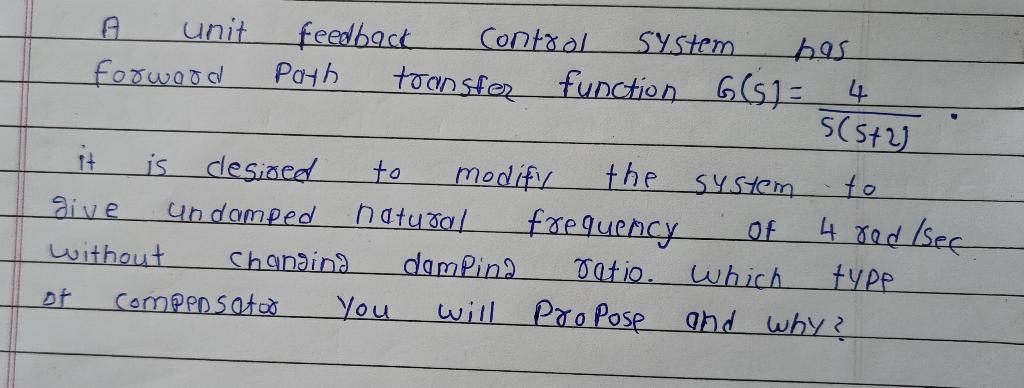 A unit feedback control system has
forward path transfer function G(s) = 4 / s(s+2) .
it is desired to modify the system to
give undamped natural frequency of 4 rad/sec
without changing damping ratio. which type
of compensator you will propose and why?